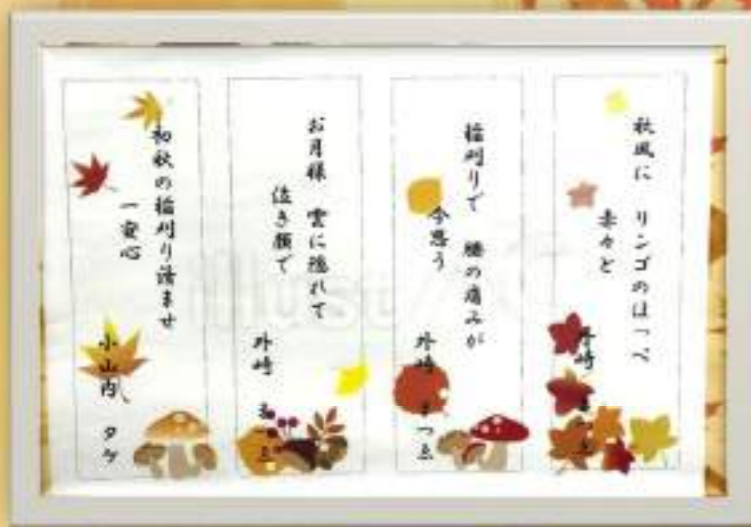 秋風に リンゴのほっぺ
赤々と
外崎 まつゑ
稲刈りで 腰の痛みが
今思う
外崎 まつゑ
お月様 雲に隠れて
泣き顔で
外崎 まつゑ
初秋の稲刈り済ませ
一安心
小山内 タケ